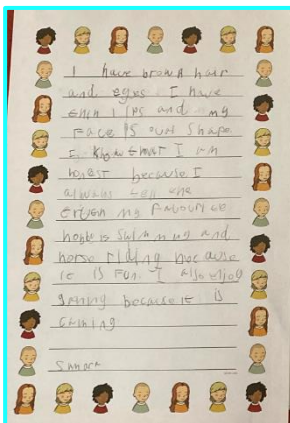 I have brown hair
and eyes. I have
thin lips and my
Face is oval shape
I know that I am
honest because I
always tell the
truth my Favourite
hobby is swimming and
horse riding because
it is Fun. I also enjoy
because it is